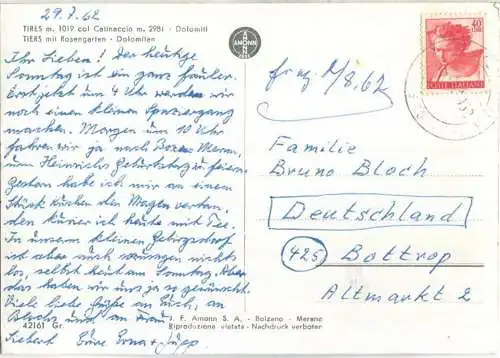 29.7.62
TIRES m. 1019 col Catinaccio m. 2981 - Dolomiti
TIERS mit Rosengarten - Dolomiten
Ihr Lieben! Der heutige
Sonntag ist ein ganz fauler.
Erst jetzt um 4 Uhr werden wir
noch einen kleinen Spaziergang
machen. Morgen um 10 Uhr
fahren wir ja nach Bozen Meran,
um Heinrichs Geburtstag zu feiern.
Gestern habe ich mir an einem
Stück Kuchen den Magen vertan,
den kurier ich heute mit Tee.
In unserm kleinen Gebirgsdorf
ist aber auch nichts
los, selbst heut am Sonntag. Aber
das haben wir uns ja so gewünscht.
Viel liebe Grüße an Euch, an
Blochs und an Frau
Siebert Eure Erna + Jupp
AMONN
40
POSTE ITALIANE
1/8.62
Familie
Bruno Bloch
Deutschland
(425) Bottrop
Altmarkt 2
J. F. Amonn S. A. - Bolzano - Merano
42161 Gr. Riproduzione vietata - Nachdruck verboten